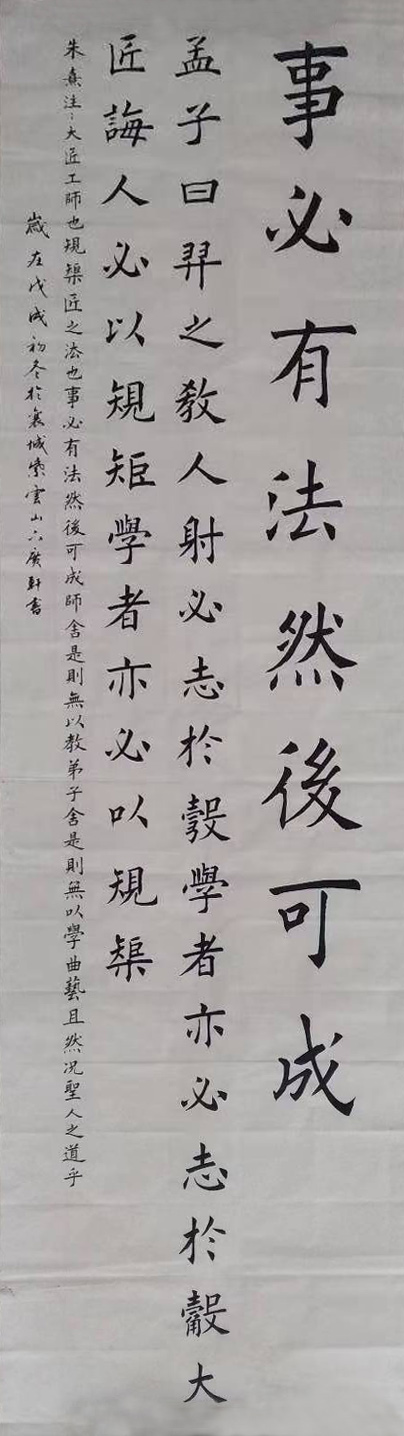 事必有法然後可成
孟子曰羿之教人射必志於彀學者亦必志於彀大
匠誨人必以規矩學者亦必以規榘
朱熹注：大匠工師也規榘匠之法也事必有法然後可成師舍是則無以教弟子舍是則無以學曲藝且然况聖人之道乎
歲在戊戌初冬於襄城紫雲山六廣軒書